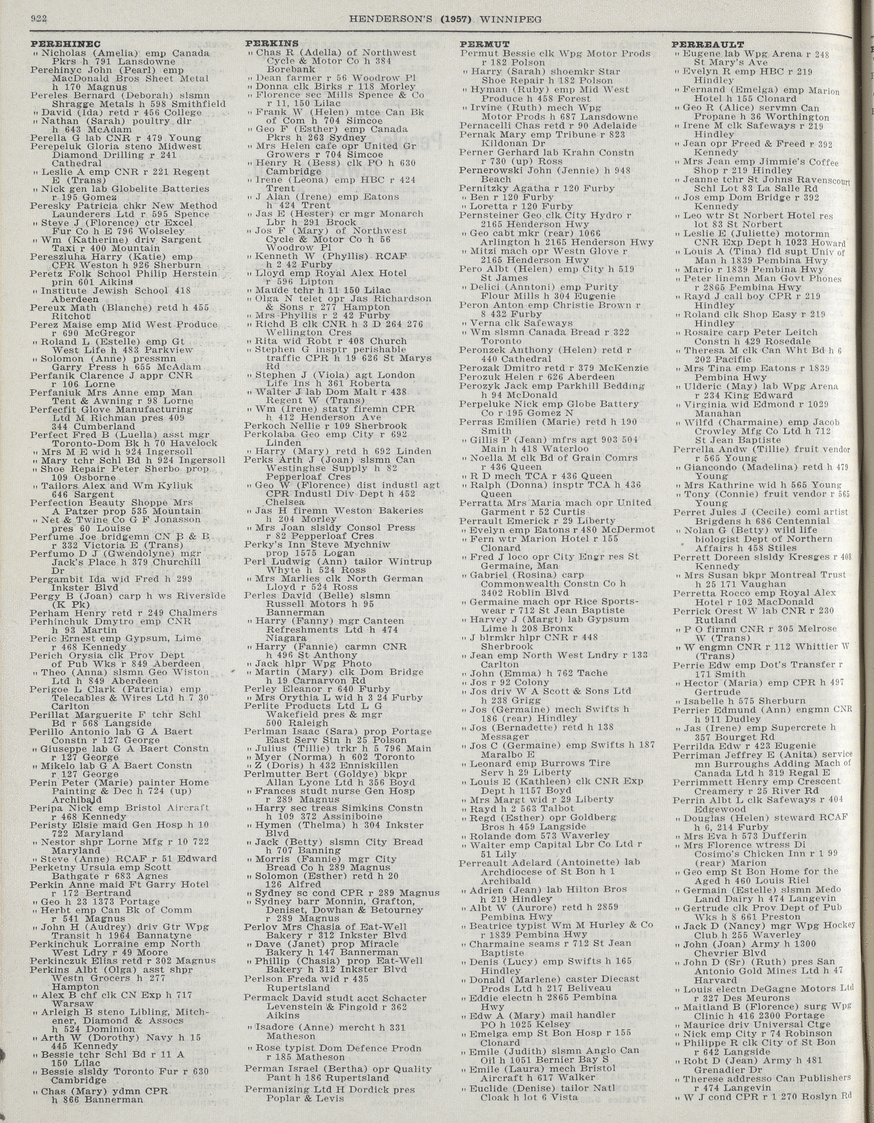 922 HENDERSON'S (1957) WINNIPEG
PEREHINEC
" Nicholas (Amelia) emp Canada
Pkrs h 791 Lansdowne
Perehinyc John (Pearl) emp
MacDonald Bros Sheet Metal
h 170 Magnus
Pereles Bernard (Deborah) slsmn
Shragge Metals h 598 Smithfield
" David (Ida) retd r 456 College
" Nathan (Sarah) poultry dlr
h 643 McAdam
Perella G lab CNR r 479 Young
Perepeluk Gloria steno Midwest
Diamond Drilling r 241
Cathedral
" Leslie A emp CNR r 221 Regent
E (Trans)
" Nick gen lab Globelite Batteries
r 195 Gomez
Peresky Patricia chkr New Method
Launderers Ltd r 595 Spence
" Steve J (Florence) ctr Excel
Fur Co h E 796 Wolseley
" Wm (Katherine) driv Sargent
Taxi r 400 Mountain
Pereszluha Harry (Katie) emp
CPR Weston h 926 Sherburn
Peretz Folk School Philip Herstein
prin 601 Aikins
" Institute Jewish School 418
Aberdeen
Pereux Math (Blanche) retd h 455
Ritchot
Perez Maise emp Mid West Produce
r 690 McGregor
" Roland L (Estelle) emp Gt
West Life h 483 Parkview
" Solomon (Anne) pressmn
Garry Press h 655 McAdam
Perfanik Clarence J appr CNR
r 106 Lorne
Perfaniuk Mrs Anne emp Man
Tent & Awning r 98 Lorne
Perfecfit Glove Manufacturing
Ltd M Richman pres 409
344 Cumberland
Perfect Fred B (Luella) asst mgr
Toronto-Dom Bk h 70 Havelock
" Mrs M E wid h 924 Ingersoll
" Mary tchr Schl Bd r 924 Ingersoll
" Shoe Repair Peter Sherbo prop
109 Osborne
" Tailors Alex and Wm Kyliuk
646 Sargent
Perfection Beauty Shoppe Mrs
A Patzer prop 535 Mountain
" Net & Twine Co G F Jonasson
pres 60 Louise
Perfume Joe bridgemn CN B & B
r 332 Victoria E (Trans)
Perfumo D J (Gwendolyne) mgr
Jack's Place h 379 Churchill
Dr
Pergambit Ida wid Fred h 299
Inkster Blvd
Pergy B (Joan) carp h ws Riverside
(K Pk)
Perham Henry retd r 249 Chalmers
Perhinchuk Dmytro emp CNR
h 93 Martin
Peric Ernest emp Gypsum, Lime
r 468 Kennedy
Perich Orysia clk Prov Dept
of Pub Wks r 849 Aberdeen
" Theo (Anna) slsmn Geo Wiston
Ltd h 849 Aberdeen
Perigoe L Clark (Patricia) emp
Telecables & Wires Ltd h 7 30
Carlton
Perillat Marguerite F tchr Schl
Bd r 568 Langside
Perillo Antonio lab G A Baert
Constn r 127 George
" Giuseppe lab G A Baert Constn
r 127 George
" Mikelo lab G A Baert Constn
r 127 George
Perin Peter (Marie) painter Home
Painting & Dec h 724 (up)
Archibald
Peripa Nick emp Bristol Aircraft
r 468 Kennedy
Peristy Elsie maid Gen Hosp h 10
722 Maryland
" Nestor shpr Lorne Mfg r 10 722
Maryland
" Steve (Anne) RCAF r 51 Edward
Perketny Ursula emp Scott
Bathgate r 683 Agnes
Perkin Anne maid Ft Garry Hotel
r 172 Bertrand
" Geo h 23 1373 Portage
" Herbt emp Can Bk of Comm
r 541 Magnus
" John H (Audrey) driv Gtr Wpg
Transit h 1964 Bannatyne
Perkinchuk Lorraine emp North
West Ldry r 49 Moore
Perkinczuk Elias retd r 302 Magnus
Perkins Albt (Olga) asst shpr
Westn Grocers h 277
Hampton
" Alex B chf clk CN Exp h 717
Warsaw
" Arleigh B steno Libling, Mitch-
ener, Diamond & Assocs
h 524 Dominion
" Arth W (Dorothy) Navy h 15
445 Kennedy
" Bessie tchr Schl Bd r 11 A
150 Lilac
" Bessie slsldy Toronto Fur r 630
Cambridge
" Chas (Mary) ydmn CPR
h 866 Bannerman
PERKINS
" Chas R (Adella) of Northwest
Cycle & Motor Co h 384
Borebank
" Dean farmer r 56 Woodrow Pl
" Donna clk Birks r 118 Morley
" Florence sec Mills Spence & Co
r 11, 150 Lilac
" Frank W (Helen) mtce Can Bk
of Com h 704 Simcoe
" Geo F (Esther) emp Canada
Pkrs h 263 Sydney
" Mrs Helen cafe opr United Gr
Growers r 704 Simcoe
" Henry R (Bess) clk PO h 630
Cambridge
" Irene (Leona) emp HBC r 424
Trent
" J Alan (Irene) emp Eatons
h 424 Trent
" Jas E (Hester) cr mgr Monarch
Lbr h 291 Brock
" Jos F (Mary) of Northwest
Cycle & Motor Co h 56
Woodrow Pl
" Kenneth W (Phyllis) RCAF
h 2 42 Furby
" Lloyd emp Royal Alex Hotel
r 596 Lipton
" Maude tchr h 11 150 Lilac
" Olga N telet opr Jas Richardson
& Sons r 277 Hampton
" Mrs Phyllis r 2 42 Furby
" Richd B clk CNR h 3 D 264 276
Wellington Cres
" Rita wid Robt r 408 Church
" Stephen G insptr perishable
traffic CPR h 19 626 St Marys
Rd
" Stephen J (Viola) agt London
Life Ins h 361 Roberta
" Walter J lab Dom Malt r 438
Regent W (Trans)
" Wm (Irene) staty firemn CPR
h 412 Henderson Ave
Perkoch Nellie r 109 Sherbrook
Perkolaba Geo emp City r 692
Linden
" Harry (Mary) retd h 692 Linden
Perks Arth J (Joan) slsmn Can
Westinghse Supply h 82
Pepperloaf Cres
" Geo W (Florence) dist industl agt
CPR Industl Div Dept h 452
Chelsea
" Jas H firemn Weston Bakeries
h 204 Morley
" Mrs Joan slsldy Consol Press
r 82 Pepperloaf Cres
Perky's Inn Steve Mychniw
prop 1575 Logan
Perl Ludwig (Ann) tailor Wintrup
Whyte h 524 Ross
" Mrs Marlies clk North German
Lloyd r 524 Ross
Perles David (Belle) slsmn
Russell Motors h 95
Bannerman
" Harry (Fanny) mgr Canteen
Refreshments Ltd h 474
Niagara
" Harry (Fannie) carmn CNR
h 496 St Anthony
" Jack hlpr Wpg Photo
" Martin (Mary) clk Dom Bridge
h 19 Carnarvon Rd
Perley Eleanor r 640 Furby
" Mrs Orythia L wid h 3 24 Furby
Perlite Products Ltd L G
Wakefield pres & mgr
500 Raleigh
Perlman Isaac (Sara) prop Portage
East Serv Stn h 25 Polson
" Julius (Tillie) trkr h 5 796 Main
" Myer (Norma) h 602 Toronto
" Z (Doris) h 432 Enniskillen
Perlmutter Bert (Goldye) bkpr
Allan Lyone Ltd h 356 Boyd
" Frances studt nurse Gen Hosp
r 289 Magnus
" Harry sec treas Simkins Constn
h 109 372 Assiniboine
" Hymen (Thelma) h 304 Inkster
Blvd
" Jack (Betty) slsmn City Bread
h 707 Banning
" Morris (Fannie) mgr City
Bread Co h 289 Magnus
" Solomon (Esther) retd h 20
126 Alfred
" Sydney sc cond CPR r 289 Magnus
" Sydney barr Monnin, Grafton,
Deniset, Dowhan & Betourney
r 289 Magnus
Perlov Mrs Chasia of Eat-Well
Bakery r 312 Inkster Blvd
" Dave (Janet) prop Miracle
Bakery h 147 Bannerman
" Phillip (Chasia) prop Eat-Well
Bakery h 312 Inkster Blvd
Perlson Freda wid r 435
Rupertsland
Permack David studt acct Schacter
Levenstein & Fingold r 362
Aikins
" Isadore (Anne) mercht h 331
Matheson
" Rose typist Dom Defence Prodn
r 185 Matheson
Perman Israel (Bertha) opr Quality
Pant h 186 Rupertsland
Permanizing Ltd H Dordick pres
Poplar & Levis
PERMUT
Permut Bessie clk Wpg Motor Prods
r 182 Polson
" Harry (Sarah) shoemkr Star
Shoe Repair h 182 Polson
" Hyman (Ruby) emp Mid West
Produce h 458 Forest
" Irvine (Ruth) mech Wpg
Motor Prods h 687 Lansdowne
Pernacelli Chas retd r 90 Adelaide
Pernak Mary emp Tribune r 823
Kildonan Dr
Perner Gerhard lab Krahn Constn
r 730 (up) Ross
Pernerowski John (Jennie) h 948
Beach
Pernitzky Agatha r 120 Furby
" Ben r 120 Furby
" Loretta r 120 Furby
Pernsteiner Geo clk City Hydro r
2165 Henderson Hwy
" Geo cabt mkr (rear) 1066
Arlington h 2165 Henderson Hwy
" Mitzi mach opr Westn Glove r
2165 Henderson Hwy
Pero Albt (Helen) emp City h 519
St James
" Delici (Anntoni) emp Purity
Flour Mills h 304 Eugenie
Peron Anton emp Christie Brown r
8 432 Furby
" Verna clk Safeways
" Wm slsmn Canada Bread r 322
Toronto
Peronzek Anthony (Helen) retd r
440 Cathedral
Perozak Dmitro retd r 379 McKenzie
Perozuk Helen r 626 Aberdeen
Perozyk Jack emp Parkhill Bedding
h 94 McDonald
Perpeluke Nick emp Globe Battery
Co r 195 Gomez N
Perras Emilien (Marie) retd h 190
Smith
" Gillis P (Jean) mfrs agt 903 504
Main h 418 Waterloo
" Noella M clk Bd of Grain Comrs
r 436 Queen
" R D mech TCA r 436 Queen
" Ralph (Donna) insptr TCA h 436
Queen
Perratta Mrs Maria mach opr United
Garment r 52 Curtis
Perrault Emerick r 29 Liberty
" Evelyn emp Eatons r 480 McDermot
" Fern wtr Marion Hotel r 155
Clonard
" Fred J loco opr City Engr res St
Germaine, Man
" Gabriel (Rosina) carp
Commonwealth Constn Co h
3402 Roblin Blvd
" Germaine mach opr Rice Sports-
wear r 712 St Jean Baptiste
" Harvey J (Margt) lab Gypsum
Lime h 208 Bronx
" J blrmkr hlpr CNR r 448
Sherbrook
" Jean emp North West Lndry r 133
Carlton
" John (Emma) h 762 Tache
" Jos r 92 Colony
" Jos driv W A Scott & Sons Ltd
h 238 Grigg
" Jos (Germaine) mech Swifts h
186 (rear) Hindley
" Jos (Bernadette) retd h 138
Messager
" Jos C (Germaine) emp Swifts h 187
Maralbo E
" Leonard emp Burrows Tire
Serv h 29 Liberty
" Louis E (Kathleen) clk CNR Exp
Dept h 1157 Boyd
" Mrs Margt wid r 29 Liberty
" Rayd h 2 563 Talbot
" Regd (Esther) opr Goldberg
Bros h 459 Langside
" Rolande dom 573 Waverley
" Walter emp Capital Lbr Co Ltd r
51 Lily
Perreault Adelard (Antoinette) lab
Archdiocese of St Bon h 1
Archibald
" Adrien (Jean) lab Hilton Bros
h 219 Hindley
" Albt W (Aurore) retd h 2859
Pembina Hwy
" Beatrice typist Wm M Hurley & Co
r 1839 Pembina Hwy
" Charmaine seams r 712 St Jean
Baptiste
" Denis (Lucy) emp Swifts h 165
Hindley
" Donald (Marlene) caster Diecast
Prods Ltd h 217 Beliveau
" Eddie electn h 2865 Pembina
Hwy
" Edw A (Mary) mail handler
PO h 1025 Kelsey
" Emelga emp St Bon Hosp r 155
Clonard
" Emile (Judith) slsmn Anglo Can
Oil h 1051 Bernier Bay S
" Emile (Laura) mech Bristol
Aircraft h 617 Walker
" Euclide (Denise) tailor Natl
Cloak h lot 6 Vista
PERREAULT
" Eugene lab Wpg Arena r 248
St Mary's Ave
" Evelyn R emp HBC r 219
Hindley
" Fernand (Emelga) emp Marion
Hotel h 155 Clonard
" Geo R (Alice) servmn Can
Propane h 36 Worthington
" Irene M clk Safeways r 219
Hindley
" Jean opr Freed & Freed r 392
Kennedy
" Mrs Jean emp Jimmie's Coffee
Shop r 219 Hindley
" Jeanne tchr St Johns Ravenscourt
Schl Lot 83 La Salle Rd
" Jos emp Dom Bridge r 392
Kennedy
" Leo wtr St Norbert Hotel res
lot 83 St Norbert
" Leslie E (Juliette) motormn
CNR Exp Dept h 1023 Howard
" Louis A (Tina) fld supt Univ of
Man h 1839 Pembina Hwy
" Mario r 1839 Pembina Hwy
" Peter linemn Man Govt Phones
r 2865 Pembina Hwy
" Rayd J call boy CPR r 219
Hindley
" Roland clk Shop Easy r 219
Hindley
" Rosaire carp Peter Leitch
Constn h 429 Rosedale
" Theresa M clk Can Wht Bd h 6
202 Pacific
" Mrs Tina emp Eatons r 1839
Pembina Hwy
" Ulderic (May) lab Wpg Arena
r 234 King Edward
" Virginia wid Edmond r 1029
Manahan
" Wilfd (Charmaine) emp Jacob
Crowley Mfg Co Ltd h 712
St Jean Baptiste
Perrella Andw (Tillie) fruit vendor
r 565 Young
" Giancondo (Madelina) retd h 479
Young
" Mrs Kathrine wid h 565 Young
" Tony (Connie) fruit vendor r 565
Young
Perret Jules J (Cecile) coml artist
Brigdens h 686 Centennial
" Nolan G (Betty) wild life
biologist Dept of Northern
Affairs h 458 Stiles
Perrett Doreen slsldy Kresges r 468
Kennedy
" Mrs Susan bkpr Montreal Trust
h 25 171 Vaughan
Perretta Rocco emp Royal Alex
Hotel r 102 MacDonald
Perrick Orest W lab CNR r 230
Rutland
" P O firmn CNR r 305 Melrose
W (Trans)
" W engmn CNR r 112 Whittier W
(Trans)
Perrie Edw emp Dot's Transfer r
171 Smith
" Hector (Maria) emp CPR h 497
Gertrude
" Isabelle h 575 Sherburn
Perrier Edmund (Ann) engmn CNR
h 911 Dudley
" Jas (Irene) emp Supercrete h
357 Bourget Rd
Perrilda Edw r 423 Eugenie
Perriman Jeffrey E (Anita) service
mn Burroughs Adding Mach of
Canada Ltd h 319 Regal E
Perrimnett Henry emp Crescent
Creamery r 25 River Rd
Perrin Albt L clk Safeways r 404
Edgewood
" Douglas (Helen) steward RCAF
h 6, 214 Furby
" Mrs Eva h 573 Dufferin
" Mrs Florence wtress Di
Cosimo's Chicken Inn r 1 99
(rear) Marion
" Geo emp St Bon Home for the
Aged h 460 Louis Riel
" Germain (Estelle) slsmn Medo
Land Dairy h 474 Langevin
" Gertrude clk Prov Dept of Pub
Wks h 8 661 Preston
" Jack D (Nancy) mgr Wpg Hockey
Club h 255 Waverley
" John (Joan) Army h 1300
Chevrier Blvd
" John D (Sr) (Ruth) pres San
Antonio Gold Mines Ltd h 47
Harvard
" Louis electn DeGagne Motors Ltd
r 327 Des Meurons
" Maitland B (Florence) surg Wpg
Clinic h 416 2300 Portage
" Maurice driv Universal Ctge
" Nick emp City r 74 Robinson
" Philippe R clk City of St Bon
r 642 Langside
" Robt D (Jean) Army h 481
Grenadier Dr
" Therese addresso Can Publishers
r 474 Langevin
" W J cond CPR r 1 270 Roslyn Rd